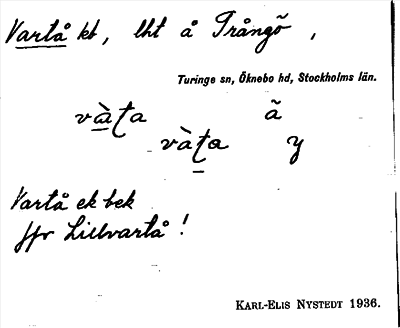 Vartå kt, lht å Trångö̃,
Turinge sn, Öknebo hd, Stockholms län.
vàt̨a ã
vàt̨a y
Vartå ek bek
jfr Lillvartå!
KARL-ELIS NYSTEDT 1936.